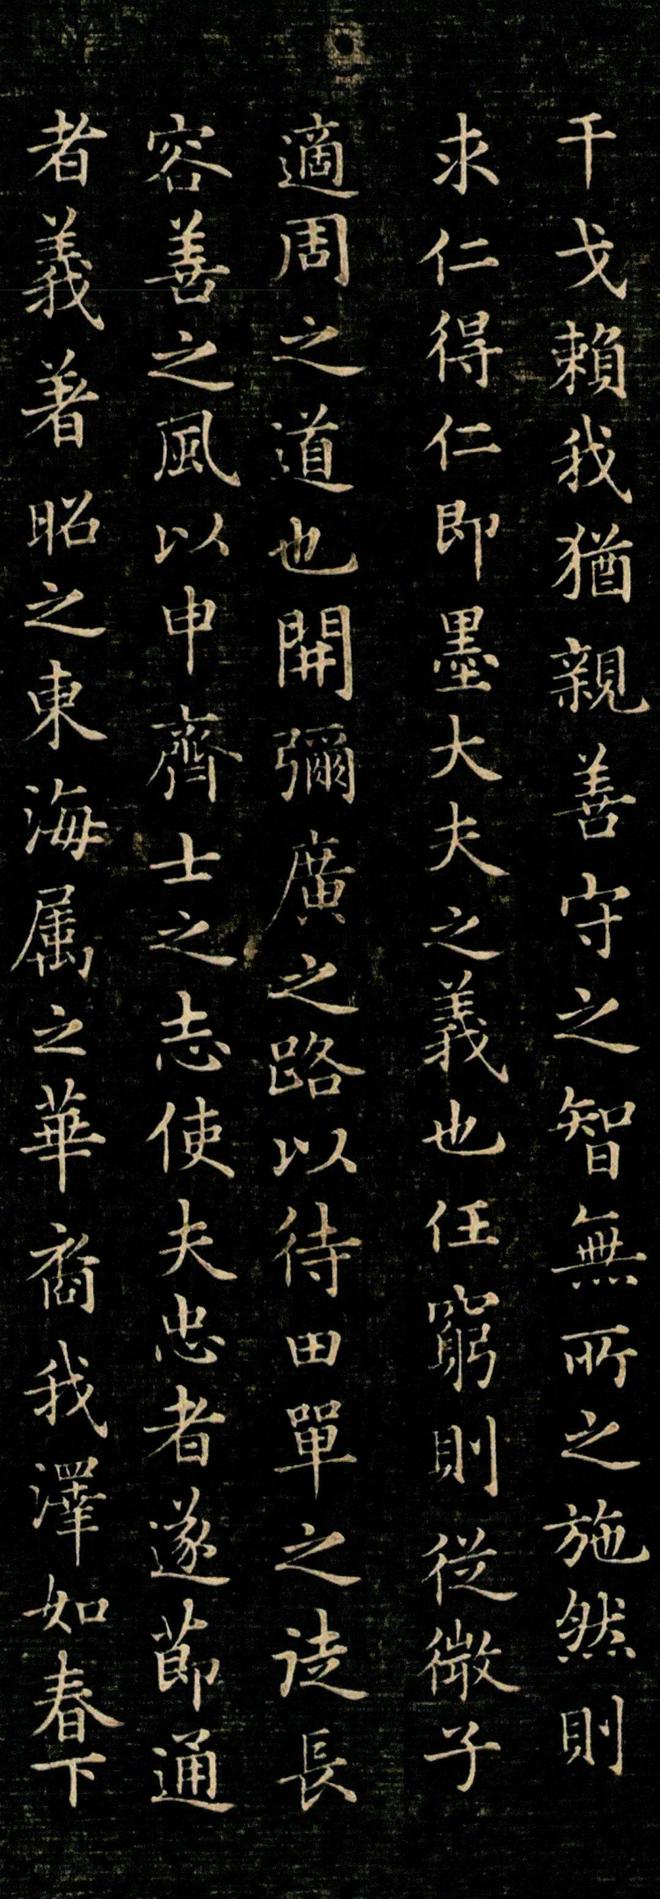 干戈賴我猶親善守之智無所之施然則
求仁得仁即墨大夫之義也任窮則從微子
適周之道也開彌廣之路以待田單之徒長
容善之風以申齊士之志使夫忠者遂節通
者義著昭之東海属之華裔我澤如春下